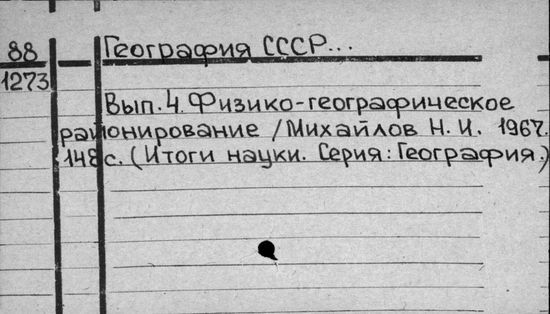 88
География СССР...
1273
Вып. 4. Физико-географическое
районирование / Михайлов Н. И. 1967.
148 с. (Итоги науки. Серия: География.)